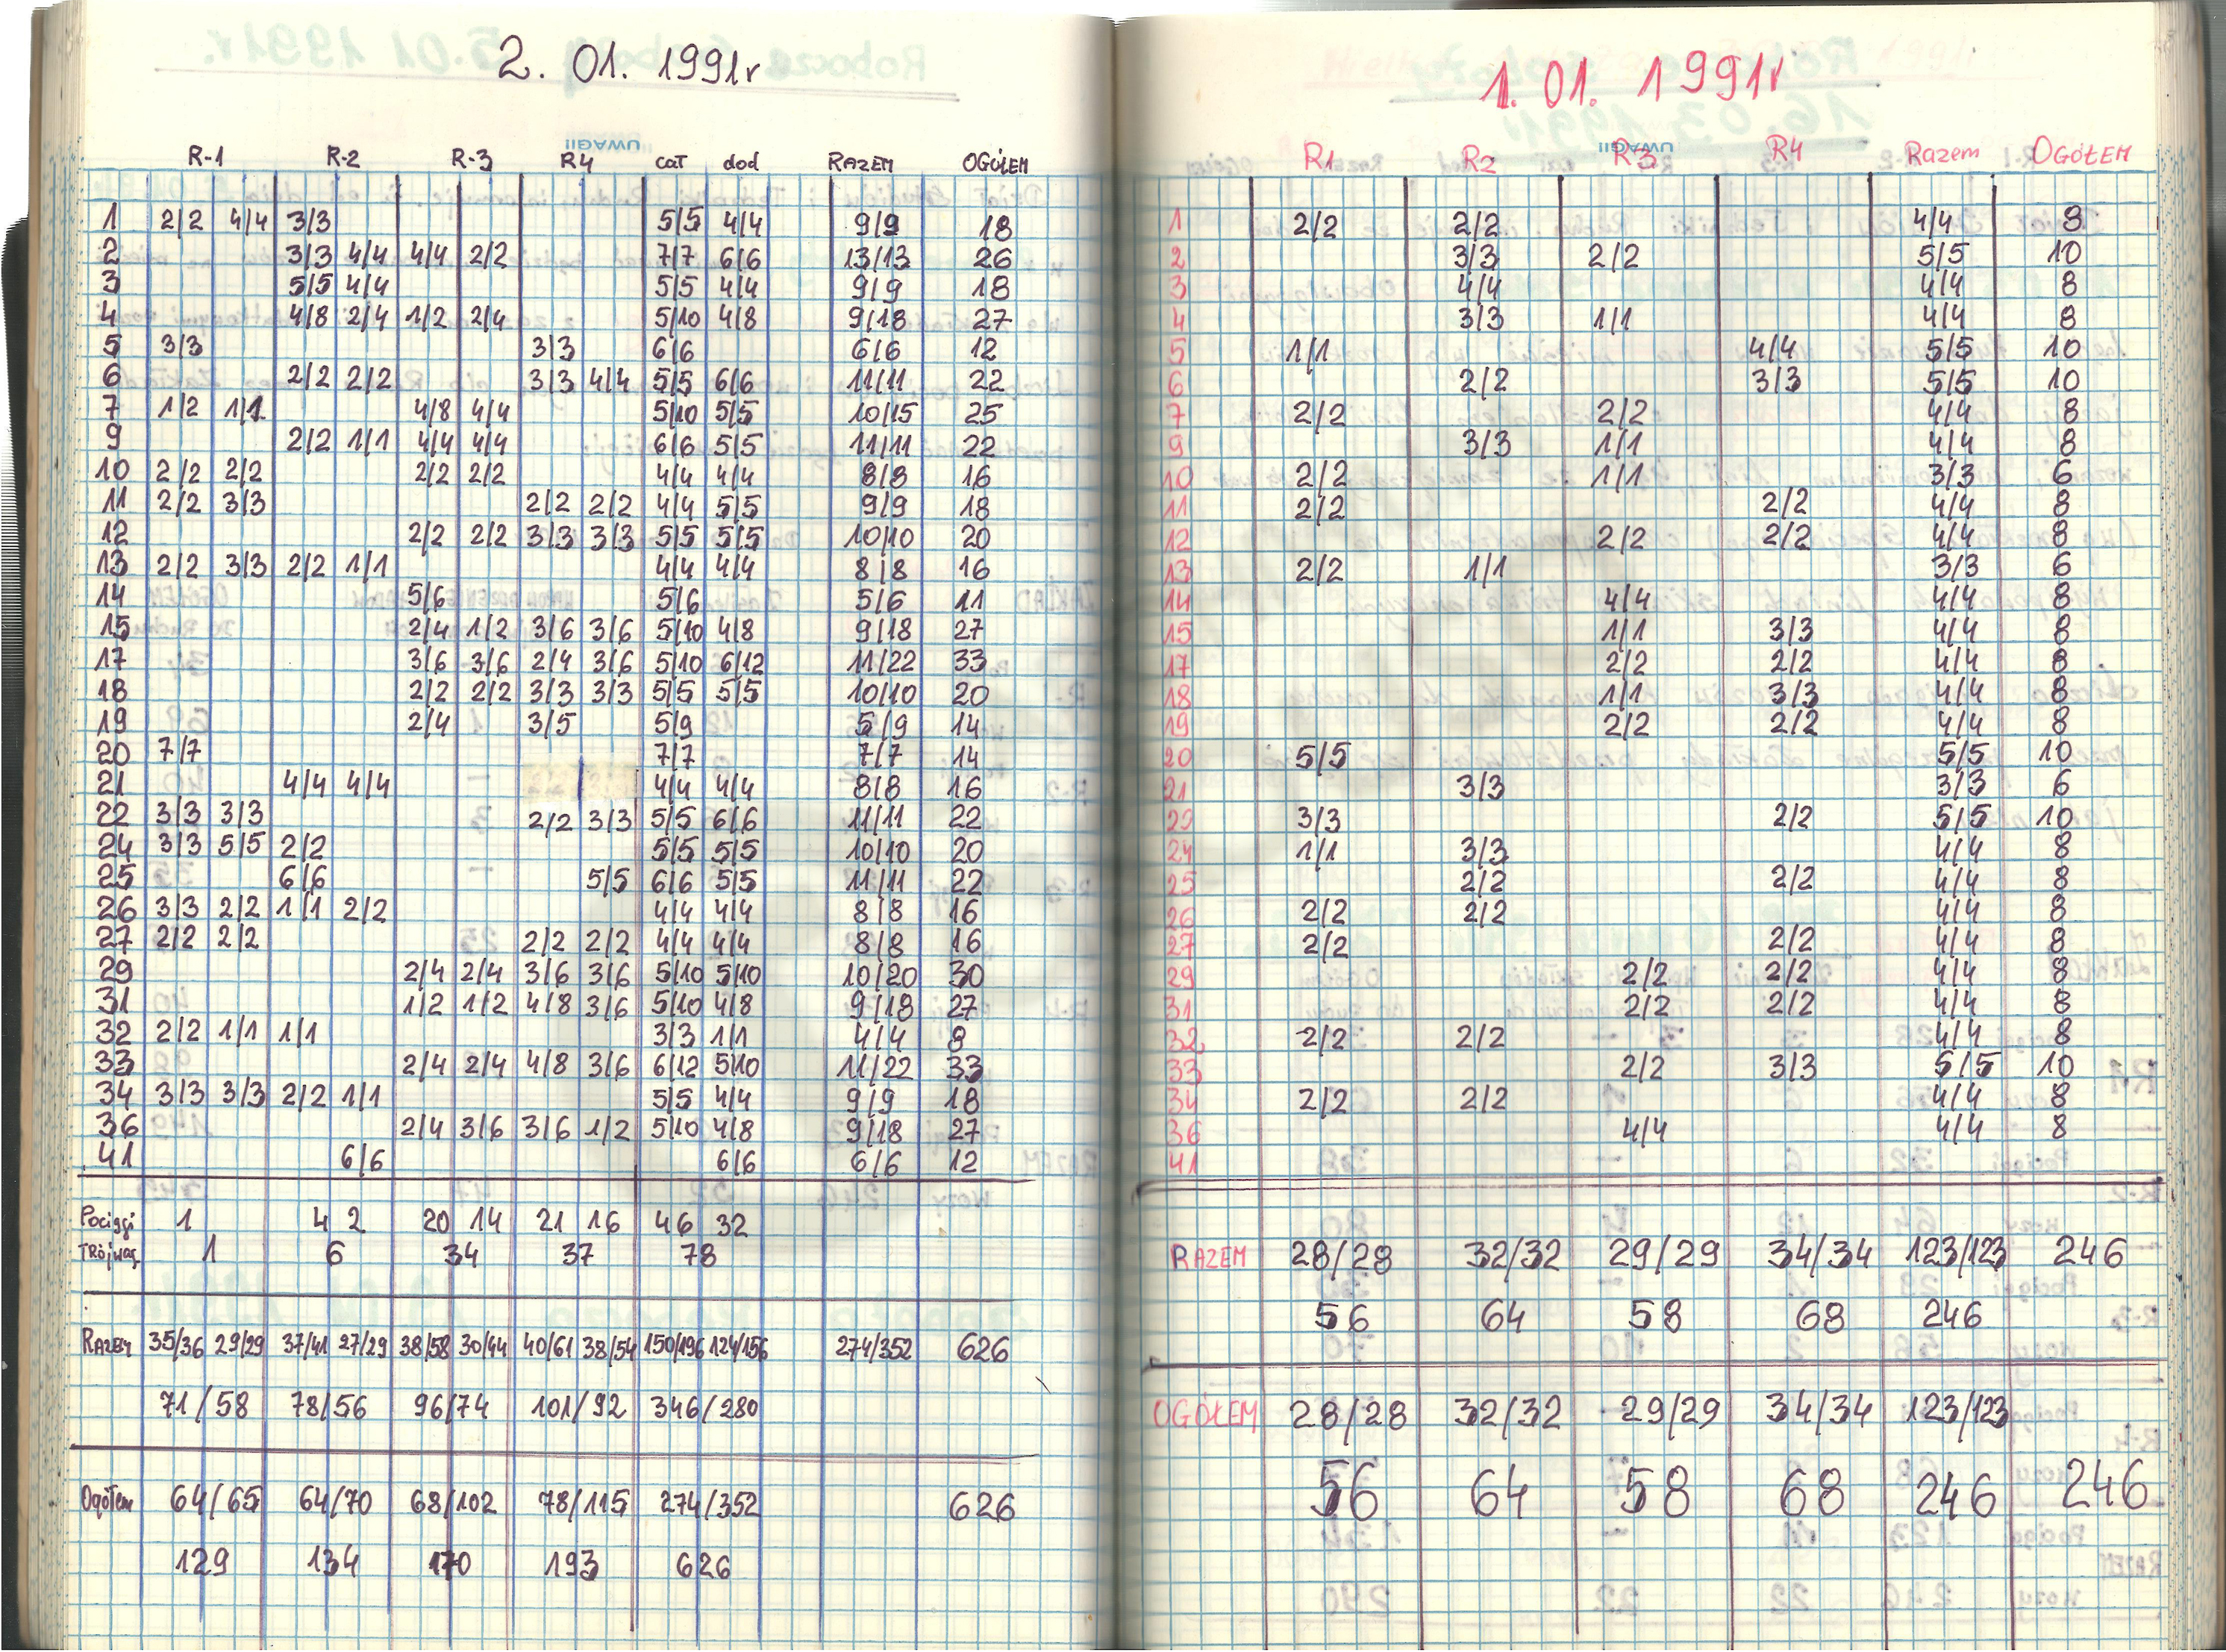 2. 01. 1991r
UWAGI!
R-1 R-2 R-3 R4 cał dod RAZEM OGÓŁEM
1 2/2 4/4 3/3 5/5 4/4 9/9 18
2 3/3 4/4 4/4 2/2 7/7 6/6 13/13 26
3 5/5 4/4 5/5 4/4 9/9 18
4 4/8 2/4 1/2 2/4 5/10 4/8 9/18 27
5 3/3 3/3 6/6 6/6 12
6 2/2 2/2 3/3 4/4 5/5 6/6 11/11 22
7 1/2 1/1 4/8 4/4 5/10 5/5 10/15 25
9 2/2 1/1 4/4 4/4 6/6 5/5 11/11 22
10 2/2 2/2 2/2 2/2 4/4 4/4 8/8 16
11 2/2 3/3 2/2 2/2 4/4 5/5 9/9 18
12 2/2 2/2 3/3 3/3 5/5 5/5 10/10 20
13 2/2 3/3 2/2 1/1 4/4 4/4 8/8 16
14 5/6 5/6 5/6 11
15 2/4 1/2 3/6 3/6 5/10 4/8 9/18 27
17 3/6 3/6 2/4 3/6 5/10 6/12 11/22 33
18 2/2 2/2 3/3 3/3 5/5 5/5 10/10 20
19 2/4 3/5 5/9 5/9 14
20 7/7 7/7 7/7 14
21 4/4 4/4 4/4 4/4 8/8 16
22 3/3 3/3 2/2 3/3 5/5 6/6 11/11 22
24 3/3 5/5 2/2 5/5 5/5 10/10 20
25 6/6 5/5 6/6 5/5 11/11 22
26 3/3 2/2 1/1 2/2 4/4 4/4 8/8 16
27 2/2 2/2 2/2 2/2 4/4 4/4 8/8 16
29 2/4 2/4 3/6 3/6 5/10 5/10 10/20 30
31 1/2 1/2 4/8 3/6 5/10 4/8 9/18 27
32 2/2 1/1 1/1 3/3 1/1 4/4 8
33 2/4 2/4 4/8 3/6 6/12 5/10 11/22 33
34 3/3 3/3 2/2 1/1 5/5 4/4 9/9 18
36 2/4 3/6 3/6 1/2 5/10 4/8 9/18 27
41 6/6 6/6 6/6 12
Pociągi 1 4 2 20 14 21 16 46 32
Trójwag 1 6 34 37 78
RAZEM 35/36 29/29 37/41 27/29 38/58 30/44 40/61 38/54 150/196 124/156 274/352 626
71/58 78/56 96/74 101/92 346/280
Ogółem 64/65 64/70 68/102 78/115 274/352 626
129 134 170 193 626
1. 01. 1991r
UWAGI!
R1 R2 R3 R4 Razem OGÓŁEM
1 2/2 2/2 4/4 8
2 3/3 2/2 5/5 10
3 4/4 4/4 8
4 3/3 1/1 4/4 8
5 1/1 4/4 5/5 10
6 2/2 3/3 5/5 10
7 2/2 2/2 4/4 8
9 3/3 1/1 4/4 8
10 2/2 1/1 3/3 6
11 2/2 2/2 4/4 8
12 2/2 2/2 4/4 8
13 2/2 1/1 3/3 6
14 4/4 4/4 8
15 1/1 3/3 4/4 8
17 2/2 2/2 4/4 8
18 1/1 3/3 4/4 8
19 2/2 2/2 4/4 8
20 5/5 5/5 10
21 3/3 3/3 6
3/3 2/2 5/5 10
24 1/1 3/3 4/4 8
25 2/2 2/2 4/4 8
26 2/2 2/2 4/4 8
27 2/2 2/2 4/4 8
29 2/2 2/2 4/4 8
31 2/2 2/2 4/4 8
32 2/2 2/2 4/4 8
33 2/2 3/3 5/5 10
34 2/2 2/2 4/4 8
36 4/4 4/4 8
41
RAZEM 28/28 32/32 29/29 34/34 123/123 246
56 64 58 68 246
OGÓŁEM 28/28 32/32 29/29 34/34 123/123
56 64 58 68 246 246